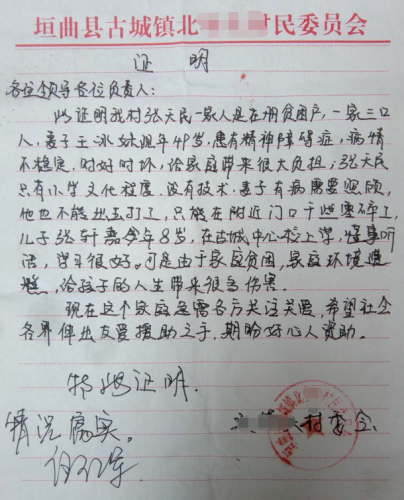 垣曲县古城镇北 村民委员会
证 明
各位领导各位负责人:
此证明我村张天民一家人是在册贫困户,一家三口
人,妻子王冰妹现年49岁,患有精神障碍症,病情
不稳定,时好时坏,给家庭带来很大负担;张天民
只有小学文化程度,没有技术.妻子有病需要照顾,
他也不能出去打工,只能在附近门口干些零碎工,
儿子张轩嘉今年8岁,在古城中心校上学,懂事听
话,学习很好。可是由于家庭贫困,家庭环境遭
糕,给孩子的人生带来很多伤害。
现在这个家庭急需各方关注关爱,希望社会
各界伸出友爱援助之手,期盼好心人资助。
特此证明.
情况属实。
村委会